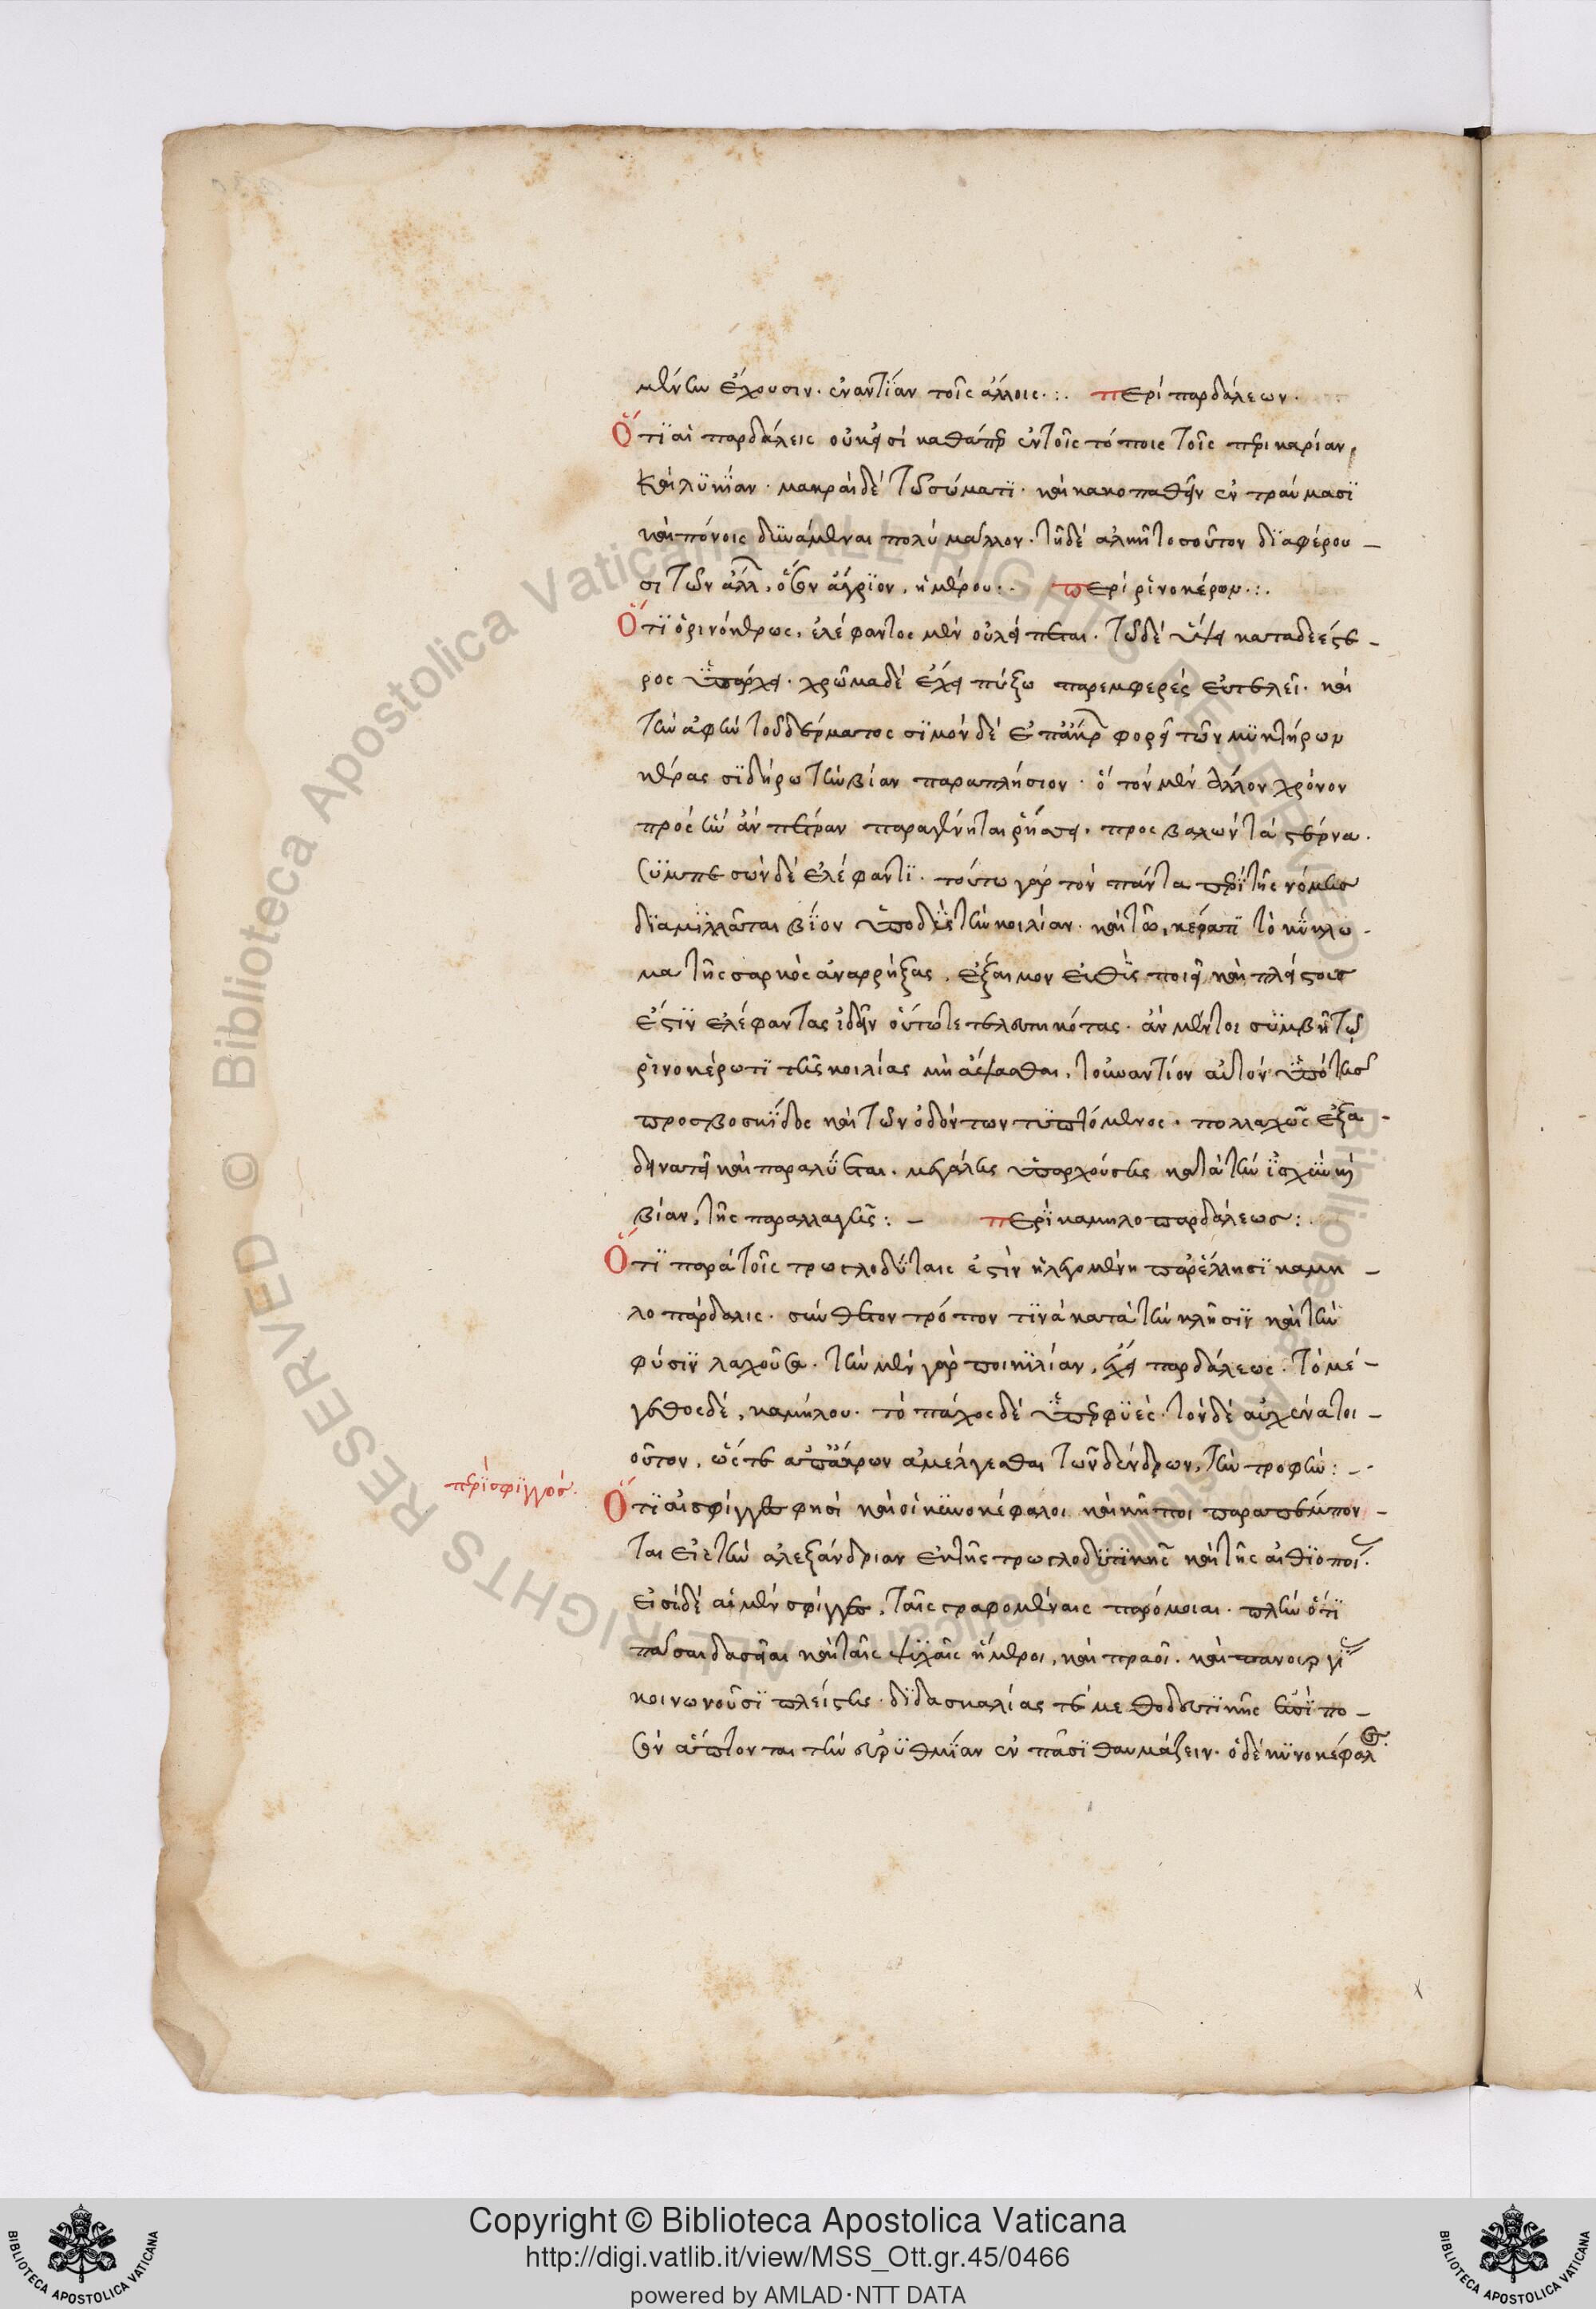 μένην ἔχουσιν. ἐναντίαν τοῖς ἄλλοις .:. περὶ παρδάλεων.
Ὅτι αἱ παρδάλεις οὐκ εἰσὶ καθάπερ ἐν τοῖς τόποις τοῖς περὶ καρίαν,
καὶ λυκίαν. μακραὶ δὲ τῶ σώματι. καὶ κακοπαθεῖν ἐν τραύμασι
καὶ πόνοις δυνάμεναι πολὺ μᾶλλον. τῆ δὲ ἀλκῆ τοσοῦτον διαφέρου-
σι τῶν ἄλλων, ὅσον ἄγριον, ἡμέρου:. περὶ ῥινοκέρων .:.
Ὅτι ὁ ρινόκερως, ἐλέφαντος μὲν οὐ λείπεται. τῶ δὲ ὕψει καταδεέστε-
ρος ὑπάρχει. χρῶμα δὲ ἔχει πύξω παρεμφερὲς εὐτελεῖ. καὶ
τὴν ἀφὴν τοῦ δέρματος σιμὸν δὲ ἐπάκρων φορεῖ τῶν μυκτήρων
κέρας σιδήρω τὴν βίαν παραπλήσιον. ὃ τὸν μὲν ἄλλον χρόνον
πρὸς ἣν ἂν πέτραν παραγένηται θήγει. προσβαλὼν τὰ στέρνα.
συμπεσὼν δὲ ἐλέφαντι. τούτω γὰρ τὸν πάντα περὶ τῆς νομῆς
διαμιλλᾶται βίον ὑποδὺς τὴν κοιλίαν. καὶ τῶ, κέρατι τὸ κύκλω-
μα τῆς σαρκὸς ἀναρρήξας, ἔξαιμον εὐθὺς ποιεῖ καὶ πλείστους
ἔστιν ἐλέφαντας ἰδεῖν οὕτω τετελευτηκότας. ἂν μέντοι συμβῆ τῶ
ρινοκέρωτι τῆς κοιλίας μὴ ἅψασθαι, τοὐναντίον αὐτὸν ὑπὸ τῆς
προσβοσκίδος καὶ τῶν ὀδόντων τυπτόμενος. πολλαχῶς ἐξα-
δυνατεῖ καὶ παραλύεται. μεγάλης ὑπαρχούσης κατὰ τὴν ἰσχὺν καὶ
βίαν, τῆς παραλλαγῆς:- περὶ καμηλοπαρδάλεως:.
Ὅτι παρὰ τοῖς τρωγλοδύταις ἐστὶν ἡ λεγομένη παρ' ἕλλησι καμη-
λοπάρδαλις. σύνθετον τρόπον τινὰ κατὰ τὴν κλῆσιν καὶ τὴν
φύσιν λαχοῦσα. τὴν μὲν γὰρ ποικιλίαν, ἔχει παρδάλεως. τὸ μέ-
γεθος δὲ, καμήλου. τὸ πάχος δὲ ὑπερφυές. τὸν δὲ αὐχένα τοι-
οῦτον, ὥστε ἀπ' ἄκρων ἀμέλγεσθαι τῶν δένδρων, τὴν τροφήν:-
περὶ σφιγγός.
Ὅτι αἱ σφίγγες φησὶ καὶ οἱ κυνοκέφαλοι καὶ κῆποι παραπέμπον-
ται εἰς τὴν ἀλεξάνδριαν ἐκ τῆς τρωγλοδυτικῆς καὶ τῆς αἰθιοπίας.
εἰσὶ δὲ αἱ μὲν σφίγγες, ταῖς γραφομέναις παρόμοιαι. πλὴν ὅτι
πᾶσαι δασεῖαι καὶ ταῖς ψυχαῖς ἥμεροι, καὶ πραοι. καὶ πανουργί
κοινωνοῦσι πλείστης. διδασκαλίας τε μεθοδευτικῆς ἐπὶ πο-
σὸν ἅπτονται τὴν εὐρυθμίαν ἐν πᾶσι θαυμάζειν. ὁ δὲ κυνοκέφαλος
Copyright © Biblioteca Apostolica Vaticana
http://digi.vatlib.it/view/MSS_Ott.gr.45/0466
powered by AMLAD·NTT DATA